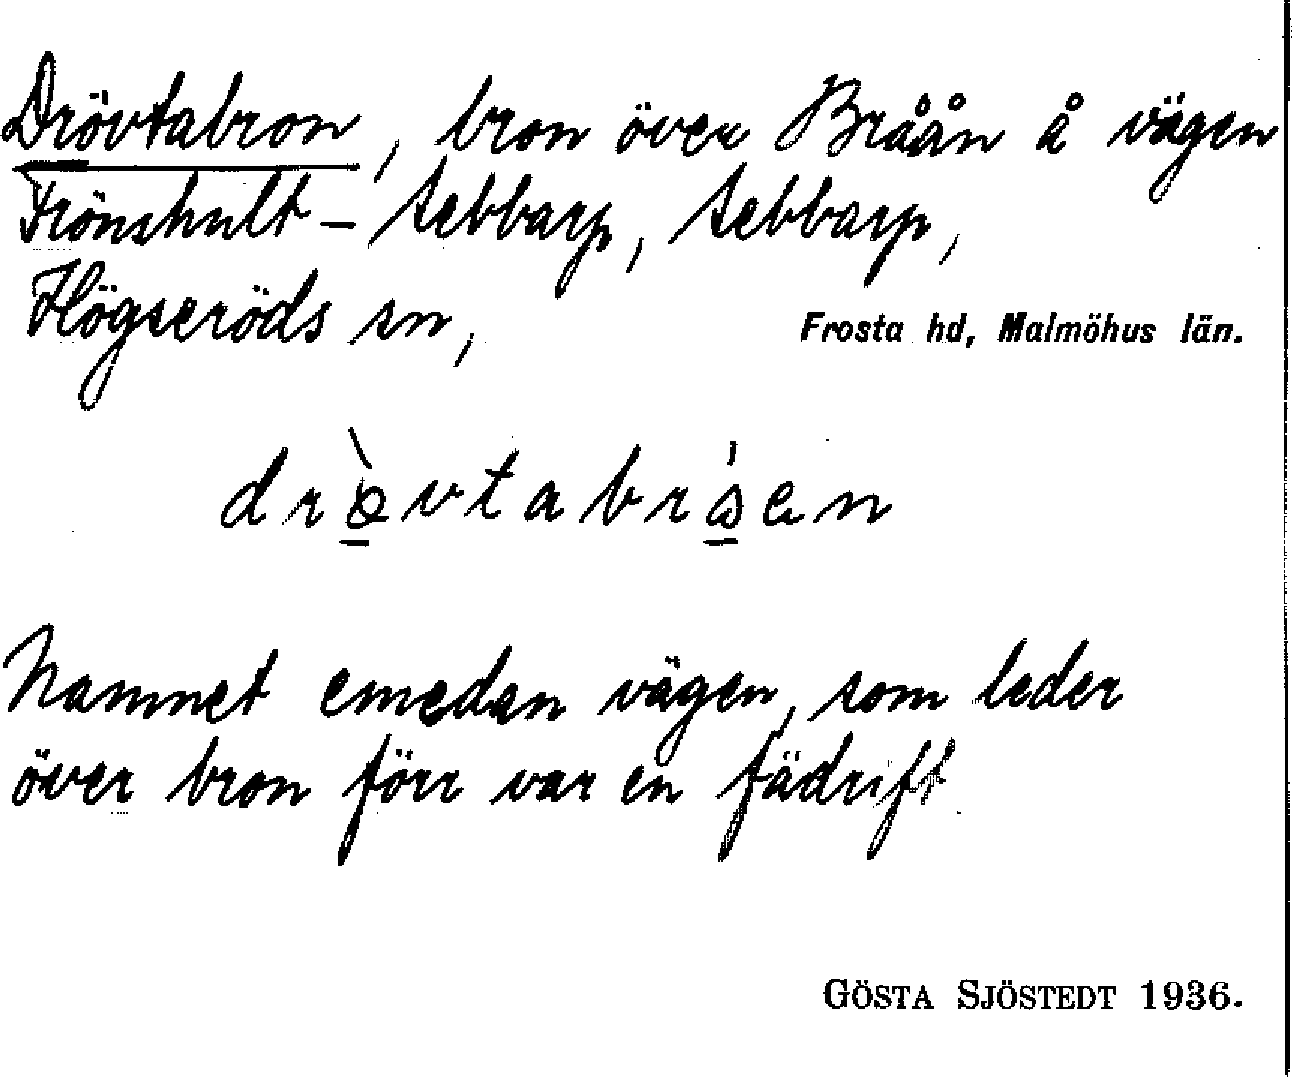 Drövtabron, bron över Bråån å vägen
Frönshult - Sebbarp, Sebbarp,
Högseröds sn,
Frosta hd, Malmöhus län.
Namnet emedan vägen, som leder
över bron förr var en fädrift
GÖSTA SJÖSTEDT 1936.